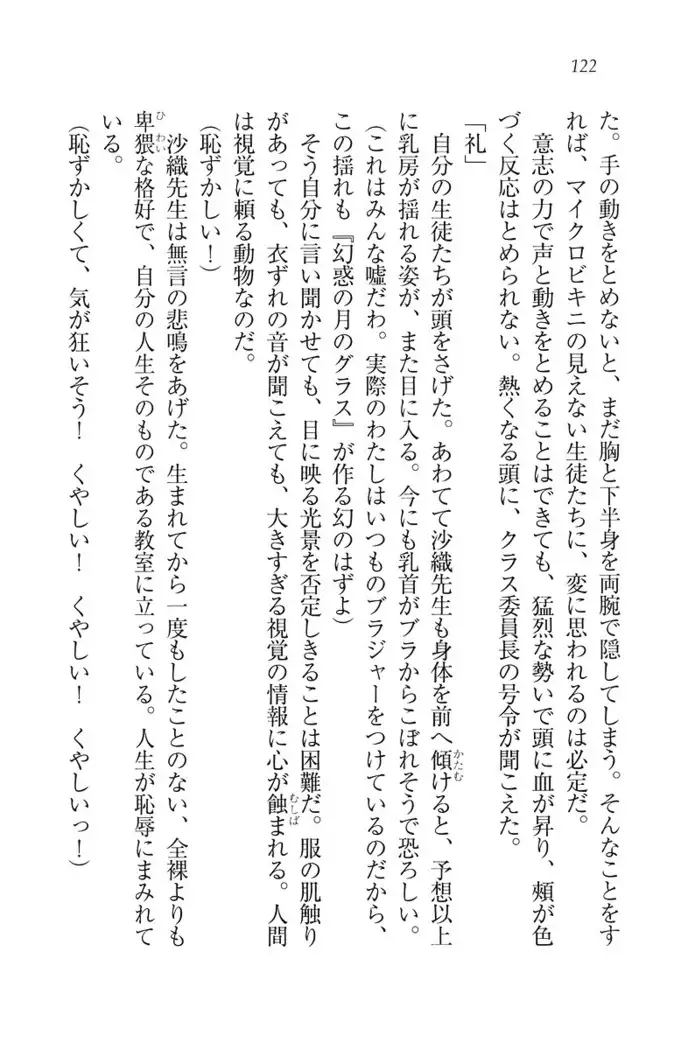 122
た。手の動きをとめないと、まだ胸と下半身を両腕で隠してしまう。そんなことをす
れば、マイクロビキニの見えない生徒たちに、変に思われるのは必定だ。
意志の力で声と動きをとめることはできても、猛烈な勢いで頭に血が昇り、頰が色
づく反応はとめられない。熱くなる頭に、クラス委員長の号令が聞こえた。
「礼」
自分の生徒たちが頭をさげた。あわてて沙織先生も身体を前へ傾けると、予想以上
に乳房が揺れる姿が、また目に入る。今にも乳首がブラからこぼれそうで恐ろしい。
(これはみんな嘘だわ。実際のわたしはいつものブラジャーをつけているのだから、
この揺れも『幻惑の月のグラス』が作る幻のはずよ)
そう自分に言い聞かせても、目に映る光景を否定しきることは困難だ。服の肌触り
があっても、衣ずれの音が聞こえても、大きすぎる視覚の情報に心が蝕まれる。人間
は視覚に頼る動物なのだ。
(恥ずかしい!)
沙織先生は無言の悲鳴をあげた。生まれてから一度もしたことのない、全裸よりも
卑猥な格好で、自分の人生そのものである教室に立っている。人生が恥辱にまみれて
いる。
(恥ずかしくて、気が狂いそう! くやしい! くやしい! くやしいっ!)
かたむ
むしば
ひわい